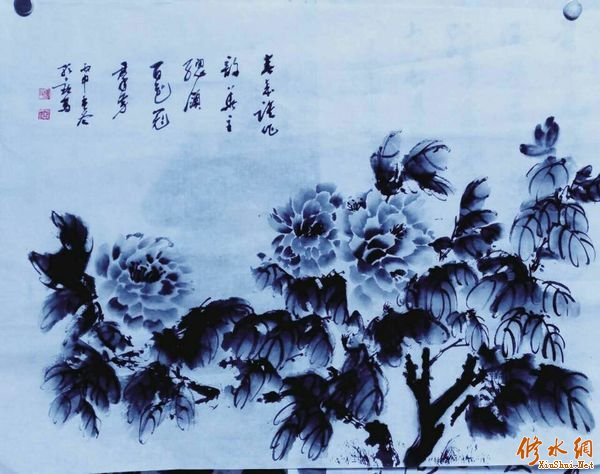 春来誰作
韵華主
總領
百花冠
羣芳
丙申春
修水網
XiuShui.Net